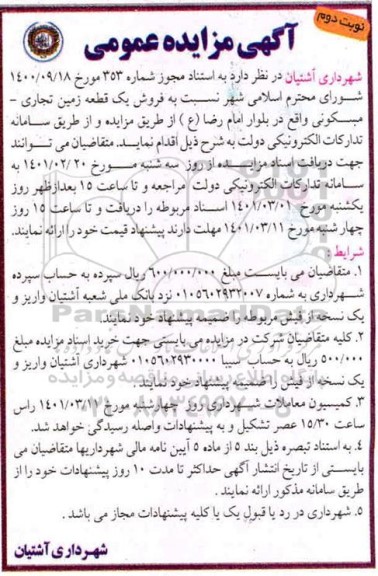 نوبت دوم
آگهی مزایده عمومی
شهرداری آشتیان در نظر دارد به استناد مجوز شماره ۳۵۳ مورخ ۱۴۰۰/۰۹/۱۸
شورای محترم اسلامی شهر نسبت به فروش یک قطعه زمین تجاری -
مسکونی واقع در بلوار امام رضا (ع) از طریق مزایده و از طریق سامانه
تدارکات الکترونیکی دولت به شرح ذیل اقدام نماید. متقاضیان می توانند
جهت دریافت اسناد مزایده از روز سه شنبه مورخ ۱۴۰۱/۰۲/۲۰ به
سامانه تدارکات الکترونیکی دولت مراجعه و تا ساعت ۱۵ بعدازظهر روز
یکشنبه مورخ ۱۴۰۱/۰۳/۰۱ اسناد مربوطه را دریافت و تا ساعت ۱۵ روز
چهار شنبه مورخ ۱۴۰۱/۰۳/۱۱ مهلت دارند پیشنهاد قیمت خود را ارائه نمایند.
شرایط :
۱. متقاضیان می بایست مبلغ ۶۰۰/۰۰۰/۰۰۰ ریال سپرده به حساب سپرده
شهرداری به شماره ۰۱۰۵۶۰۲۹۳۲۰۰۷ نزد بانک ملی شعبه آشتیان واریز و
یک نسخه از فیش مربوطه را ضمیمه پیشنهاد خود نمایند.
۲. کلیه متقاضیان شرکت در مزایده می بایستی جهت خرید اسناد مزایده مبلغ
۵۰۰/۰۰۰ ریال به حساب سیبا ۰۱۰۵۶۰۲۹۳۰۰۰۰ شهرداری آشتیان واریز و
یک نسخه از فیش را ضمیمه پیشنهاد خود نمایند.
۳. کمیسیون معاملات شهرداری روز چهارشنبه مورخ ۱۴۰۱/۰۳/۱۱ راس
ساعت ۱۵/۳۰ عصر تشکیل و به پیشنهادات واصله رسیدگی خواهد شد.
۴. به استناد تبصره ذیل بند ۵ از ماده ۵ آیین نامه مالی شهرداریها متقاضیان می
بایستی از تاریخ انتشار آگهی حداکثر تا مدت ۱۰ روز پیشنهادات خود را از
طریق سامانه مذکور ارائه نمایند .
۵. شهرداری در رد یا قبول یک یا کلیه پیشنهادات مجاز می باشد .
شهرداری آشتیان